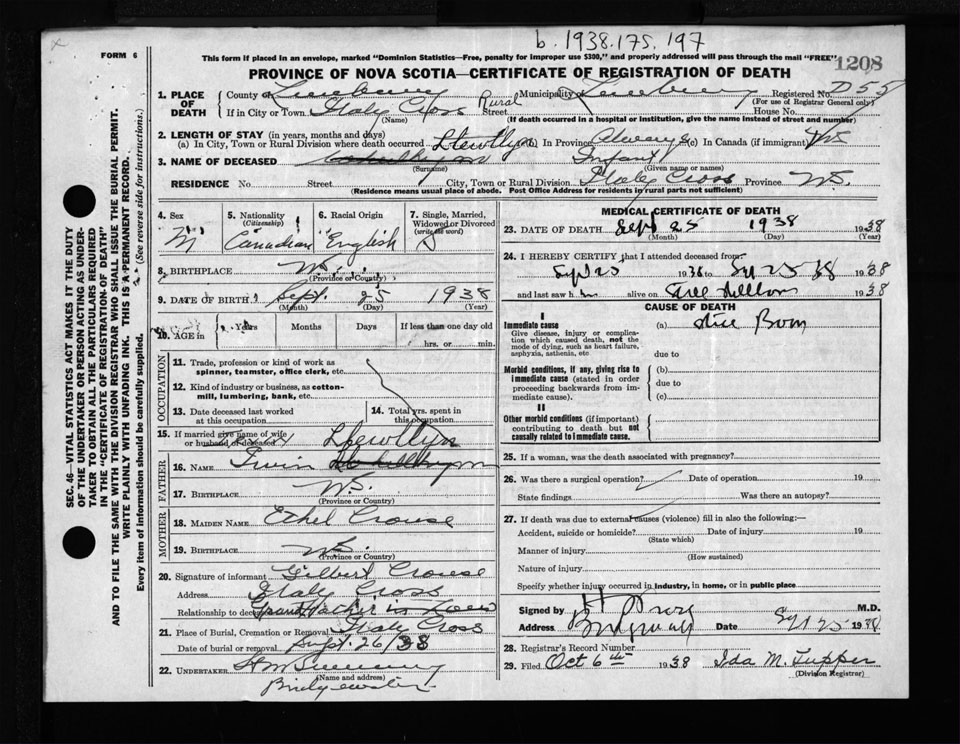 b. 1938.175.197
FORM 6
This form if placed in an envelope, marked "Dominion Statistics—Free, penalty for improper use $300," and properly addressed will pass through the mail "FREE"
1208
PROVINCE OF NOVA SCOTIA—CERTIFICATE OF REGISTRATION OF DEATH
1. PLACE OF DEATH
County of Lunenburg Municipality of Lunenburg Registered No. D55
(For use of Registrar General only)
If in City or Town Italy Cross Rural Street House No.
(Name) (If death occurred in a hospital or institution, give the name instead of street and number)
2. LENGTH OF STAY (in years, months and days)
(a) In City, Town or Rural Division where death occurred (b) In Province Always (c) In Canada (if immigrant)
Llewllyn
3. NAME OF DECEASED Infant
(Surname) (Given name or names)
RESIDENCE No. Street City, Town or Rural Division Italy Cross Province N.S.
(Residence means usual place of abode. Post Office Address for residents in rural parts not sufficient)
4. Sex M
5. Nationality (Citizenship) Canadian
6. Racial Origin English
7. Single, Married, Widowed or Divorced (write the word) S
8. BIRTHPLACE N.S.
(Province or Country)
9. DATE OF BIRTH Sept. 25 1938
(Month) (Day) (Year)
10. AGE in Years Months Days If less than one day old
hrs. or min.
OCCUPATION
11. Trade, profession or kind of work as spinner, teamster, office clerk, etc.
12. Kind of industry or business, as cotton-mill, lumbering, bank, etc.
13. Date deceased last worked at this occupation
14. Total yrs. spent in this occupation
15. If married give name of wife or husband of deceased
Llewllyn
FATHER
16. NAME Irvin
17. BIRTHPLACE N.S.
(Province or Country)
MOTHER
18. MAIDEN NAME Ethel Crouse
19. BIRTHPLACE N.S.
(Province or Country)
20. Signature of informant Gilbert Crouse
Address Italy Cross
Relationship to deceased Grandfather in Law
21. Place of Burial, Cremation or Removal Italy Cross
Date of burial or removal Sept. 26/38
22. UNDERTAKER
(Name and address)
Bridgewater
MEDICAL CERTIFICATE OF DEATH
23. DATE OF DEATH Sept 25 1938 1938
(Month) (Day) (Year)
24. I HEREBY CERTIFY that I attended deceased from
Sept 25 1938 to Sept 25 38 1938
and last saw h alive on Still born 1938
CAUSE OF DEATH
I
Immediate cause (a) Still Born
Give disease, injury or complication which caused death, not the mode of dying, such as heart failure, asphyxia, asthenia, etc
due to
Morbid conditions, if any, giving rise to immediate cause (stated in order proceeding backwards from immediate cause).
(b)
due to
(c)
II
Other morbid conditions (if important) contributing to death but not causally related to immediate cause.
25. If a woman, was the death associated with pregnancy?
26. Was there a surgical operation? Date of operation 19
State findings Was there an autopsy?
27. If death was due to external causes (violence) fill in also the following:—
Accident, suicide or homicide? Date of injury 19
(State which)
Manner of injury
(How sustained)
Nature of injury
Specify whether injury occurred in industry, in home, or in public place
Signed by M.D.
Address Bridgewater Date Sept 25 1938
28. Registrar's Record Number
29. Filed Oct 6th 1938 Ida M. Tupper
(Division Registrar)
SEC. 46—VITAL STATISTICS ACT MAKES IT THE DUTY
OF THE UNDERTAKER OR PERSON ACTING AS UNDER-
TAKER TO OBTAIN ALL THE PARTICULARS REQUIRED
IN THE "CERTIFICATE OF REGISTRATION OF DEATH"
AND TO FILE THE SAME WITH THE DIVISION REGISTRAR WHO SHALL ISSUE THE BURIAL PERMIT.
WRITE PLAINLY WITH UNFADING INK. THIS IS A PERMANENT RECORD.
Every item of information should be carefully supplied. (See reverse side for instructions.)